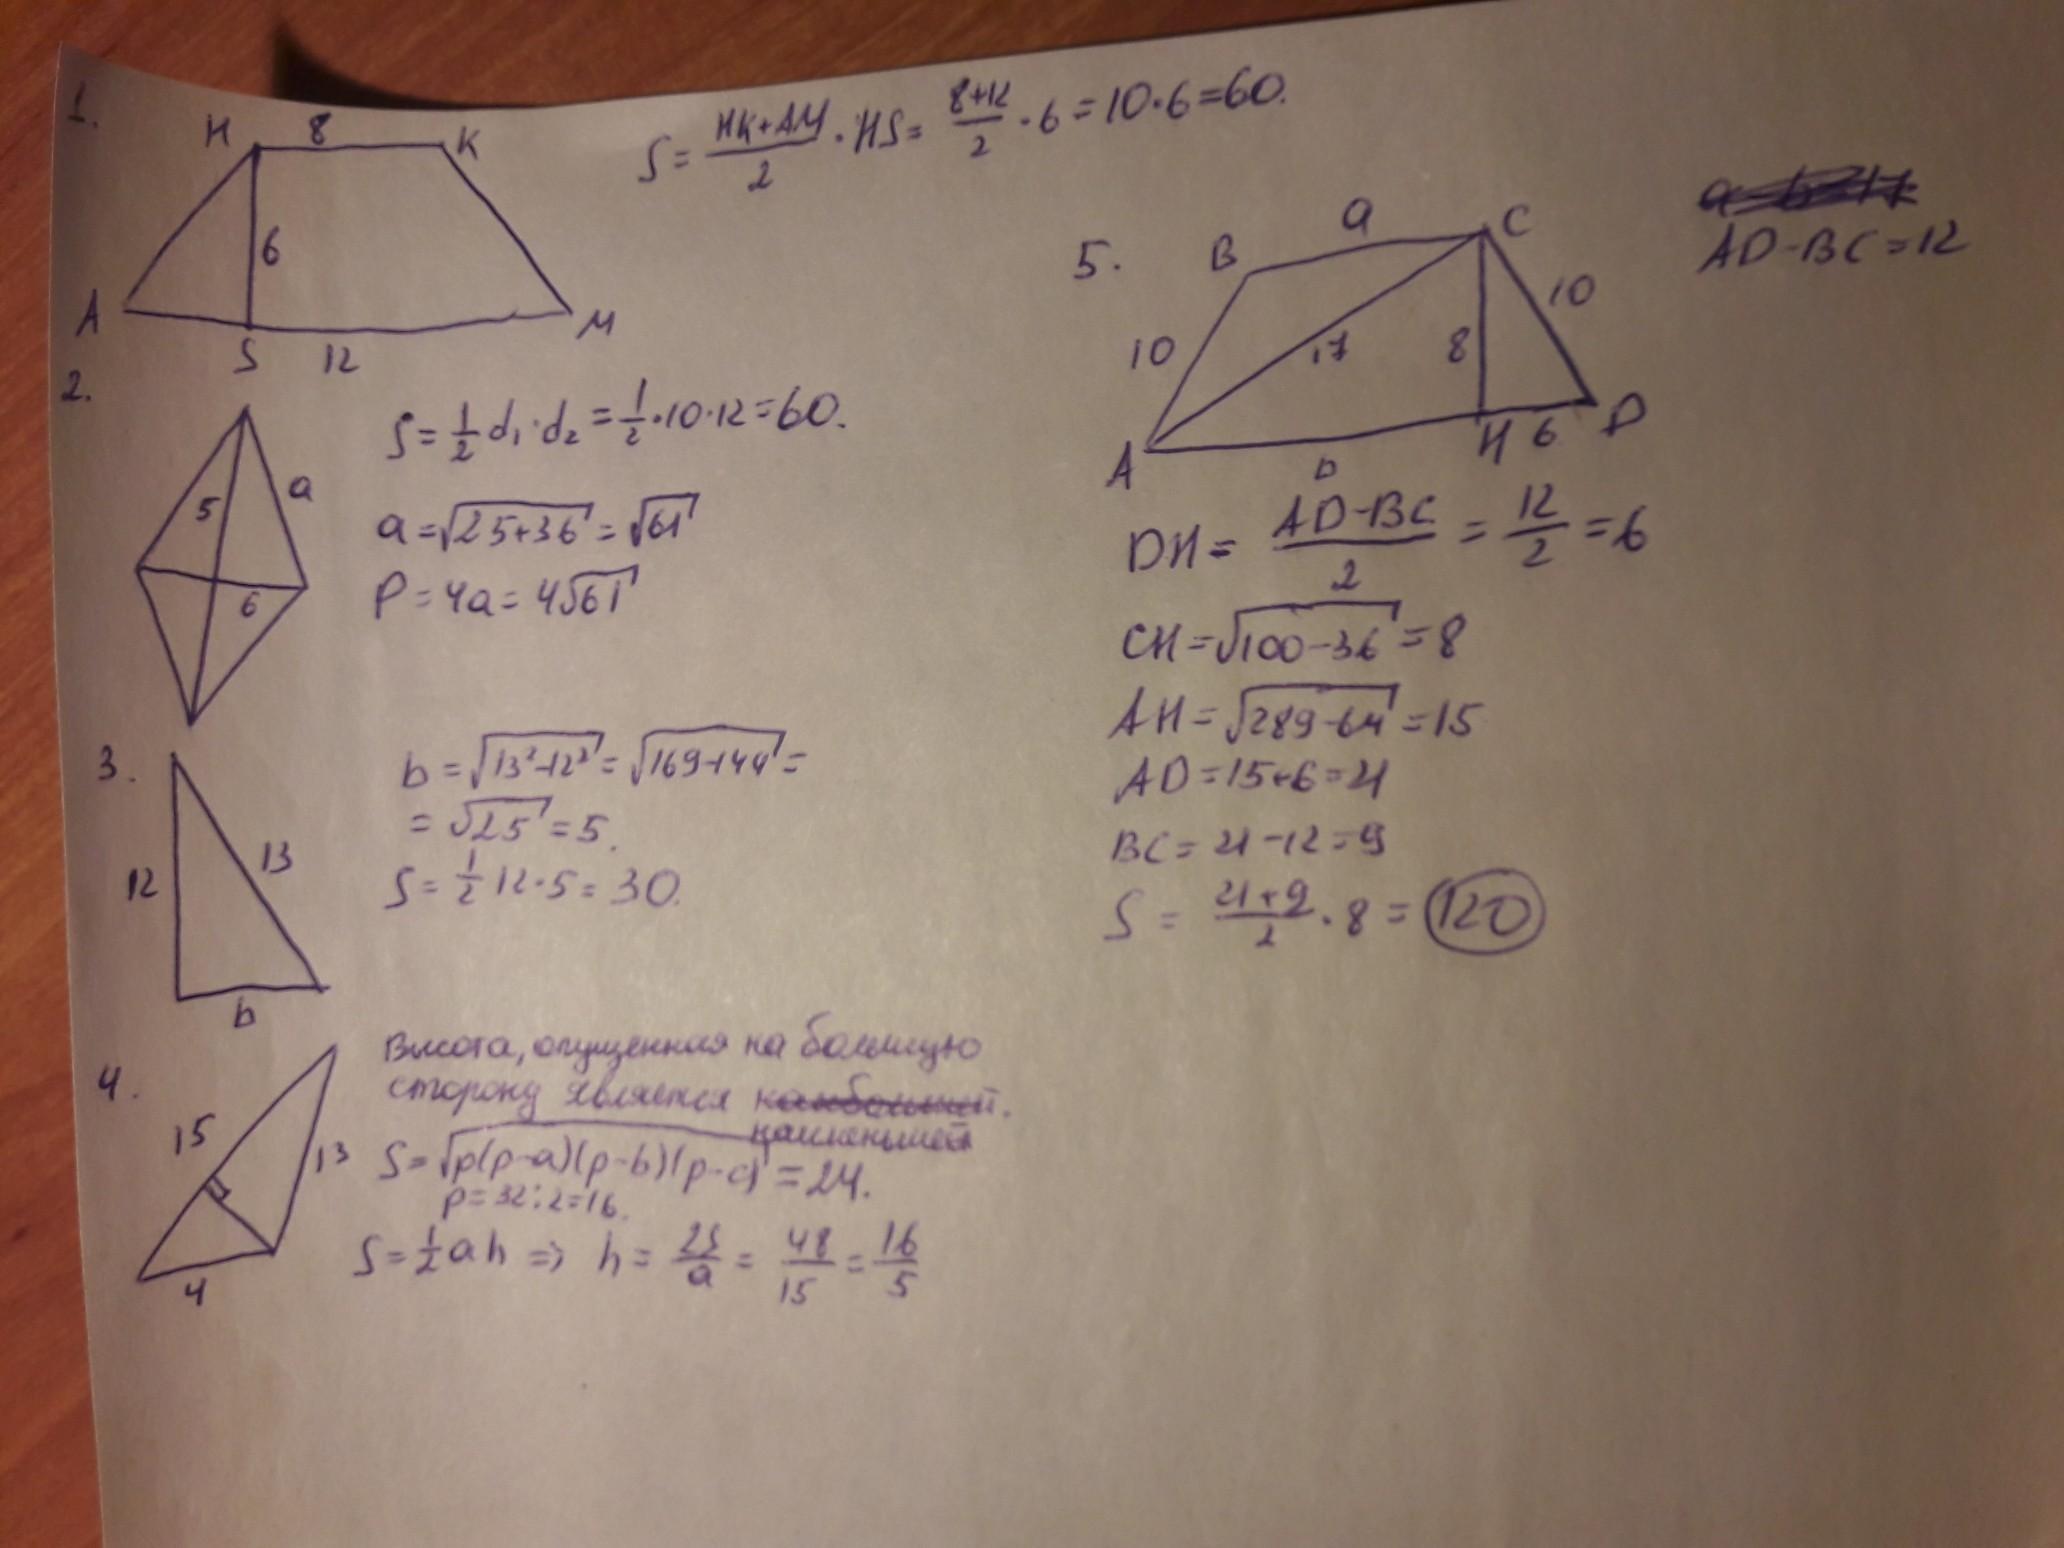 1.
H 8 K
6
A S 12 M
S = (HK+AM)/2 · HS = (8+12)/2 · 6 = 10·6 = 60.
2.
5 a
6
S = 1/2 d₁·d₂ = 1/2·10·12 = 60.
a = √(25+36) = √61
P = 4a = 4√61
3.
12 13
b
b = √(13²-12²) = √(169-144) =
= √25 = 5.
S = 1/2 12·5 = 30.
4.
15 13
4
Высота, опущенная на большую
сторону является
наименьшей
S = √(p(p-a)(p-b)(p-c)) = 24.
p = 32:2 = 16.
S = 1/2 ah ⇒ h = 2S/a = 48/15 = 16/5
5.
B a C
10 17 8 10
A b H 6 D
AD-BC=12
DH = (AD-BC)/2 = 12/2 = 6
CH = √(100-36) = 8
AH = √(289-64) = 15
AD = 15+6 = 21
BC = 21-12 = 9
S = (21+9)/2 · 8 = 120